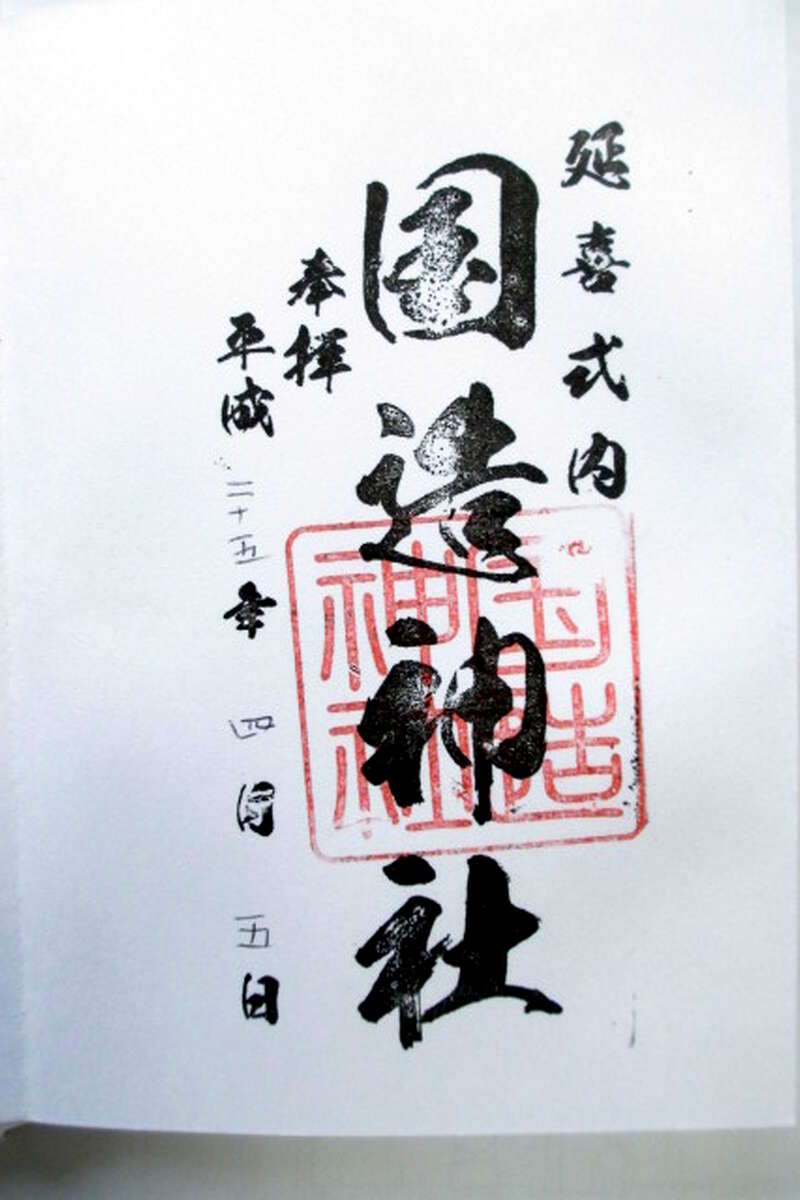 延喜式内
国造神社
奉拝
平成二十五年四月五日
国造神社